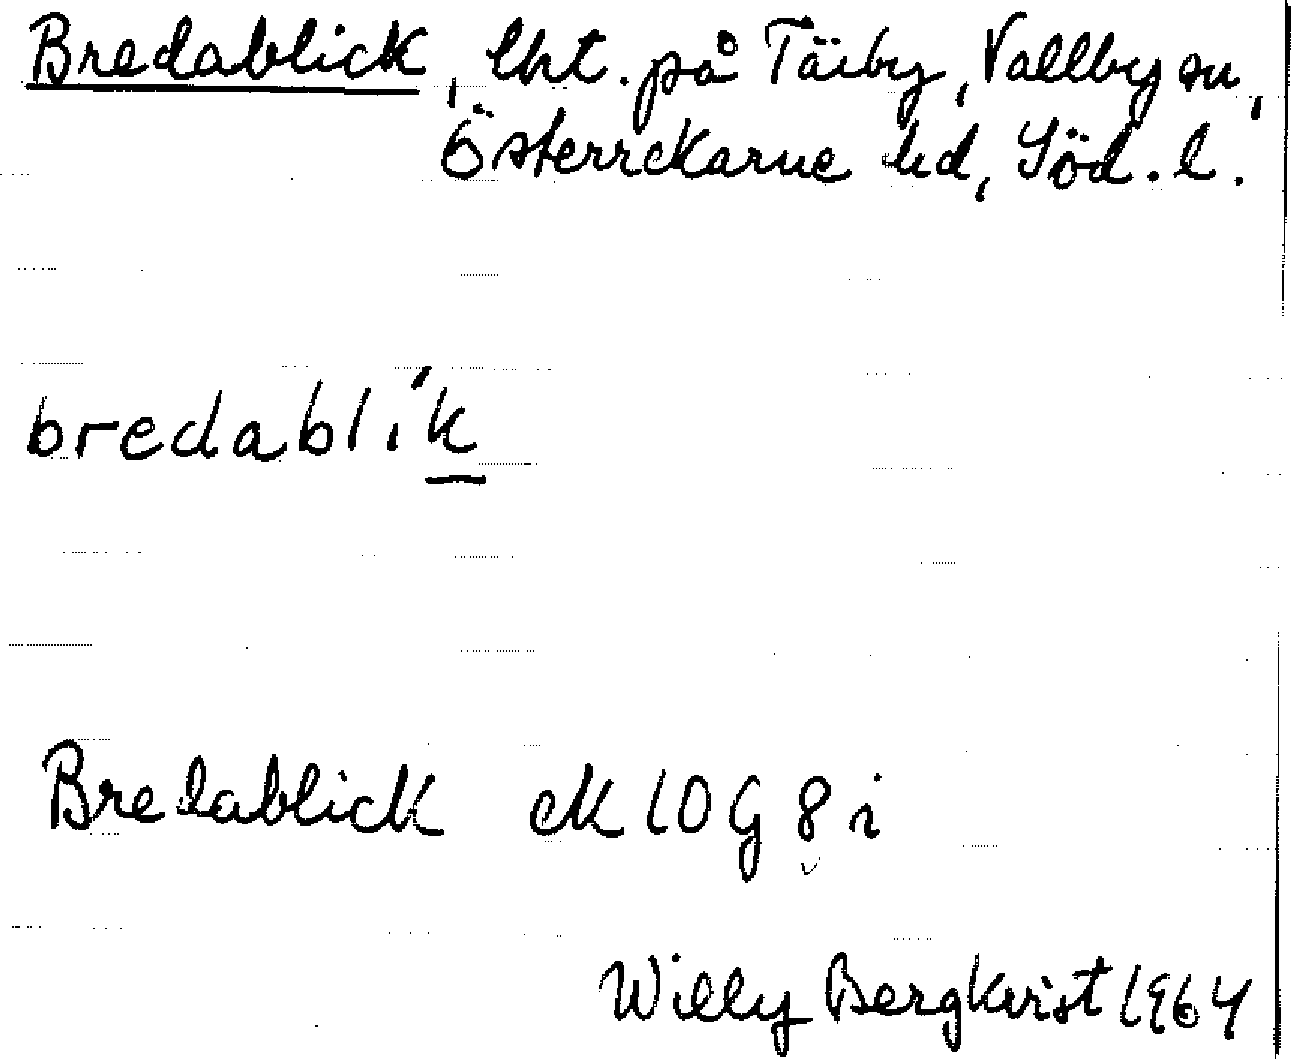 Bredablick, lht. på Täiby, Vallby sn,
Österrekarne hd, Söd. l.
bredabli´k
Bredablick ek 10G 8i
Willy Bergkvist 1964